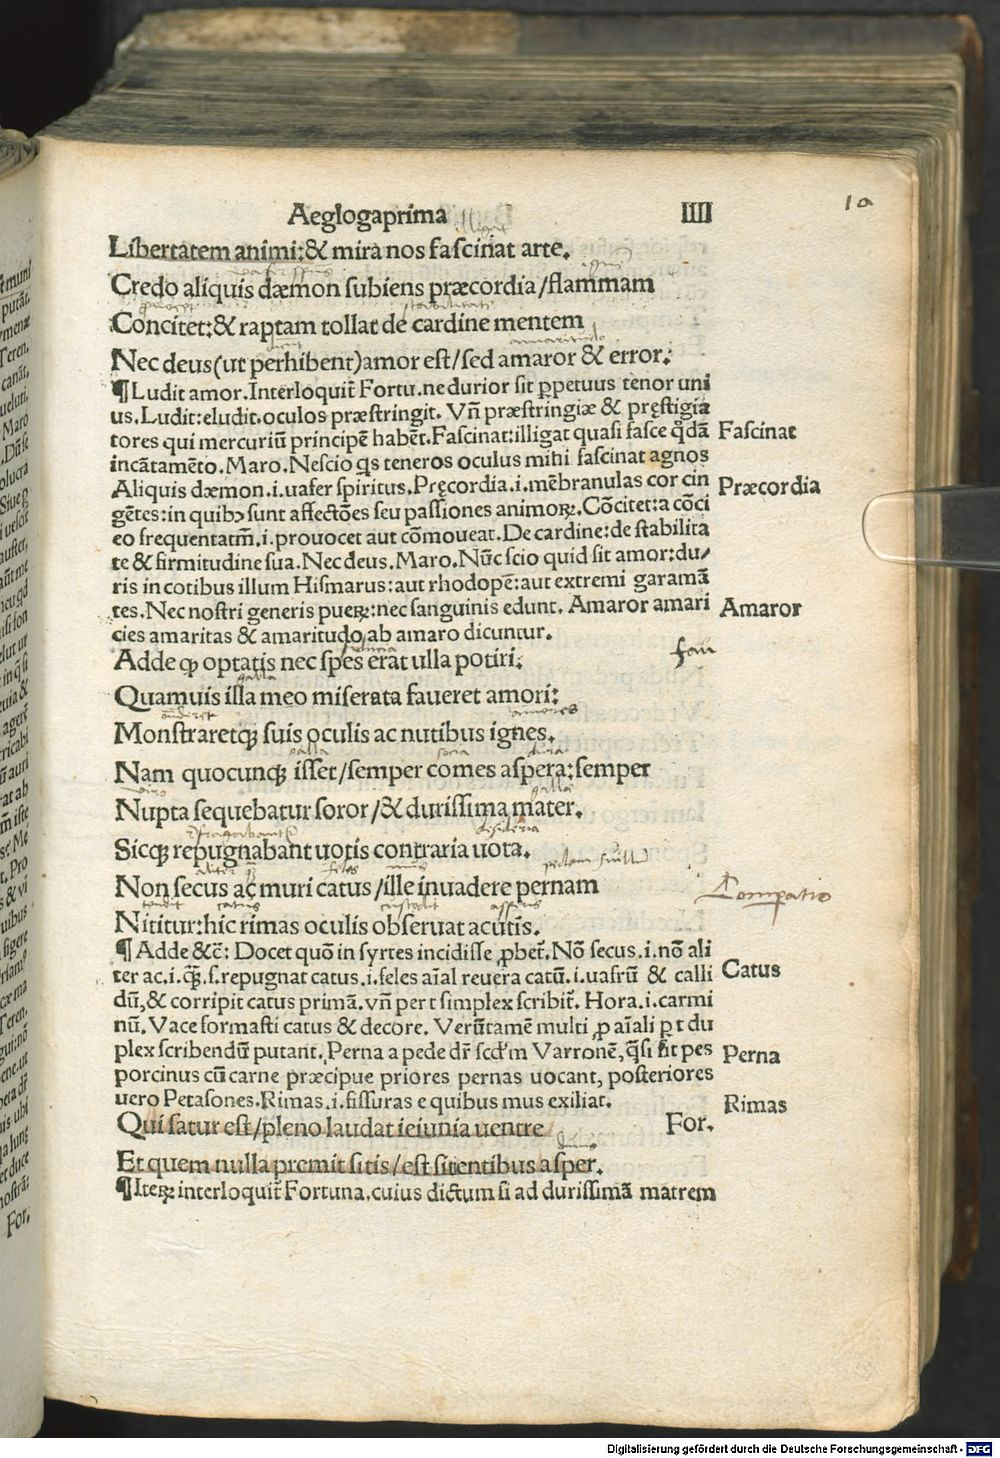 Aeglogaprima IIII
10
illigat
Libertatem animi:& mira nos fascinat arte.
Credo aliquis dæmon subiens præcordia/flammam
Concitet:& raptam tollat de cardine mentem
dicunt amaritudo
Nec deus(ut perhibent)amor est/sed amaror & error.
¶Ludit amor.Interloquit̃ Fortu.ne durior sit ꝑpetuus tenor uni
us.Ludit:eludit.oculos præstringit. Vñ præstringiæ & pręstigia
tores qui mercuriũ principẽ habẽt.Fascinat:illigat quasi fasce q̇dã Fascinat
incãtamẽto.Maro.Nescio q̇s teneros oculus mihi fascinat agnos
Aliquis dæmon.i.uafer spiritus.Pręcordia.i.mẽbranulas cor cin Præcordia
gẽtes:in quibꝰ sunt affectões seu passiones animoꝝ.Cõcitet:a cõci
eo frequentatm̃.i.prouocet aut cõmoueat.De cardine:de stabilita
te & firmitudine sua.Nec deus.Maro.Nũc scio quid sit amor:du/
ris in cotibus illum Hismarus:aut rhodopẽ:aut extremi garamã
tes.Nec nostri generis pueꝝ:nec sanguinis edunt. Amaror amari Amaror
cies amaritas & amaritudo,ab amaro dicuntur.
Adde ꝙ optatis nec spes erat ulla potiri. fau
galla
Quamuis illa meo miserata faueret amori:
amores
Monstraretqꝫ suis oculis ac nutibus ignes.
galla socia dura
Nam quocunqꝫ isset/semper comes aspera:semper
uiro gallæ
Nupta sequebatur soror/& durissima mater.
desideria
Sicqꝫ repugnabant uotis contraria uota.
feles
Non secus ac muri catus/ille inuadere pernam Compatio
tendit catus custodit
Nititur:hic rimas oculis obseruat acutis.
¶Adde &c̃: Docet quõ in syrtes incidisse ꝓbet̃.Nõ secus.i.nõ ali
ter ac.i.qꝫ̃.s.repugnat catus.i.feles aĩal reuera catũ.i.uafrũ & calli Catus
dũ,& corripit catus primã.vñ per t simplex scribit̃. Hora.i.carmi
nũ.Vace formasti catus & decore. Verũtamẽ multi ꝓ aĩali ꝑ t du
plex scribendũ putant.Perna a pede dr̃ scd'm Varronẽ,q̃si sit pes Perna
porcinus cũ carne præcipue priores pernas uocant, posteriores
uero Petasones.Rimas.i.fissuras e quibus mus exiliat. Rimas
Qui satur est/pleno laudat ieiunia uentre For.
Et quem nulla premit sitis/est sitientibus asper.
¶Iteꝝ interloquit̃ Fortuna.cuius dictum si ad durissimã matrem
Digitalisierung gefördert durch die Deutsche Forschungsgemeinschaft - DFG